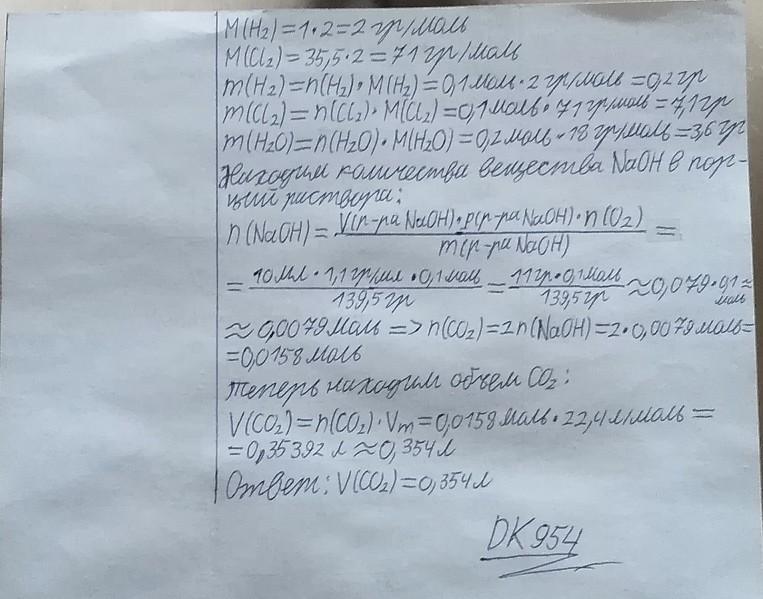 M(H₂)=1·2=2 гр/моль
M(Cl₂)=35,5·2=71 гр/моль
m(H₂)=n(H₂)·M(H₂)=0,1 моль·2 гр/моль=0,2 гр
m(Cl₂)=n(Cl₂)·M(Cl₂)=0,1 моль·71 гр/моль=7,1 гр
m(H₂O)=n(H₂O)·M(H₂O)=0,2 моль·18 гр/моль=3,6 гр
Находим количества вещества NaOH в пор-
ции раствора:
n(NaOH)=V(р-ра NaOH)·ρ(р-ра NaOH)·n(O₂)/m(р-ра NaOH)=
=10 мл·1,1 гр/мл·0,1 моль/139,5 гр=11 гр·0,1 моль/139,5 гр≈0,079·0,1 моль≈
≈0,0079 моль=>n(CO₂)=2n(NaOH)=2·0,0079 моль=
=0,0158 моль
Теперь находим объем CO₂:
V(CO₂)=n(CO₂)·Vm=0,0158 моль·22,4 л/моль=
=0,35392 л≈0,354 л
Ответ: V(CO₂)=0,354 л
DK954